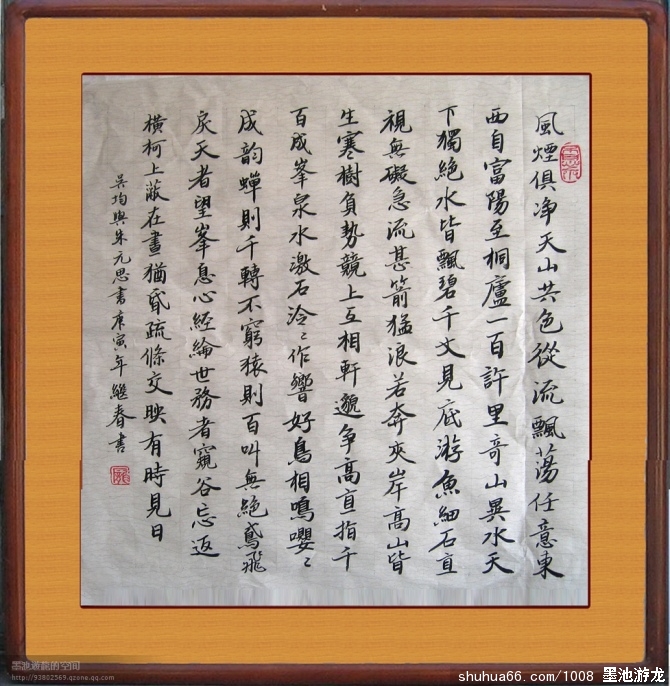 風煙俱净天山共色從流飄蕩任意東
西自富陽至桐廬一百許里奇山異水天
下獨絶水皆飄碧千丈見底游魚細石直
視無礙急流甚箭猛浪若奔夾岸高山皆
生寒樹負勢競上互相軒邈争高直指千
百成峯泉水激石泠〻作響好鳥相鳴嚶〻
成韵蟬則千轉不窮猿則百叫無絶鳶飛
戾天者望峯息心經綸世務者窺谷忘返
横柯上蔽在晝猶昏疏條交映有時見日
吴均與朱元思書庚寅年繼春書
墨池游龍的空间
http://93802569.qzone.qq.com
shuhua66.com/1008 墨池游龙